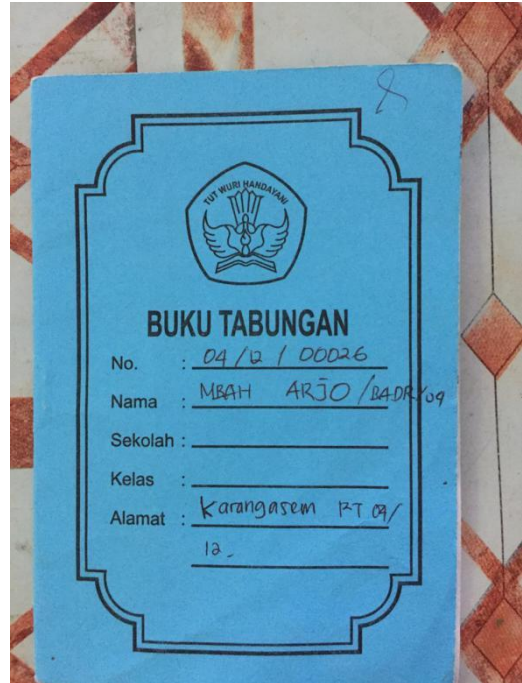 TUT WURI HANDAYANI
BUKU TABUNGAN
No. : 04/12 / 00026
Nama : MBAH ARJO / BADRI/09
Sekolah :
Kelas :
Alamat : Karangasem RT 09/
12.